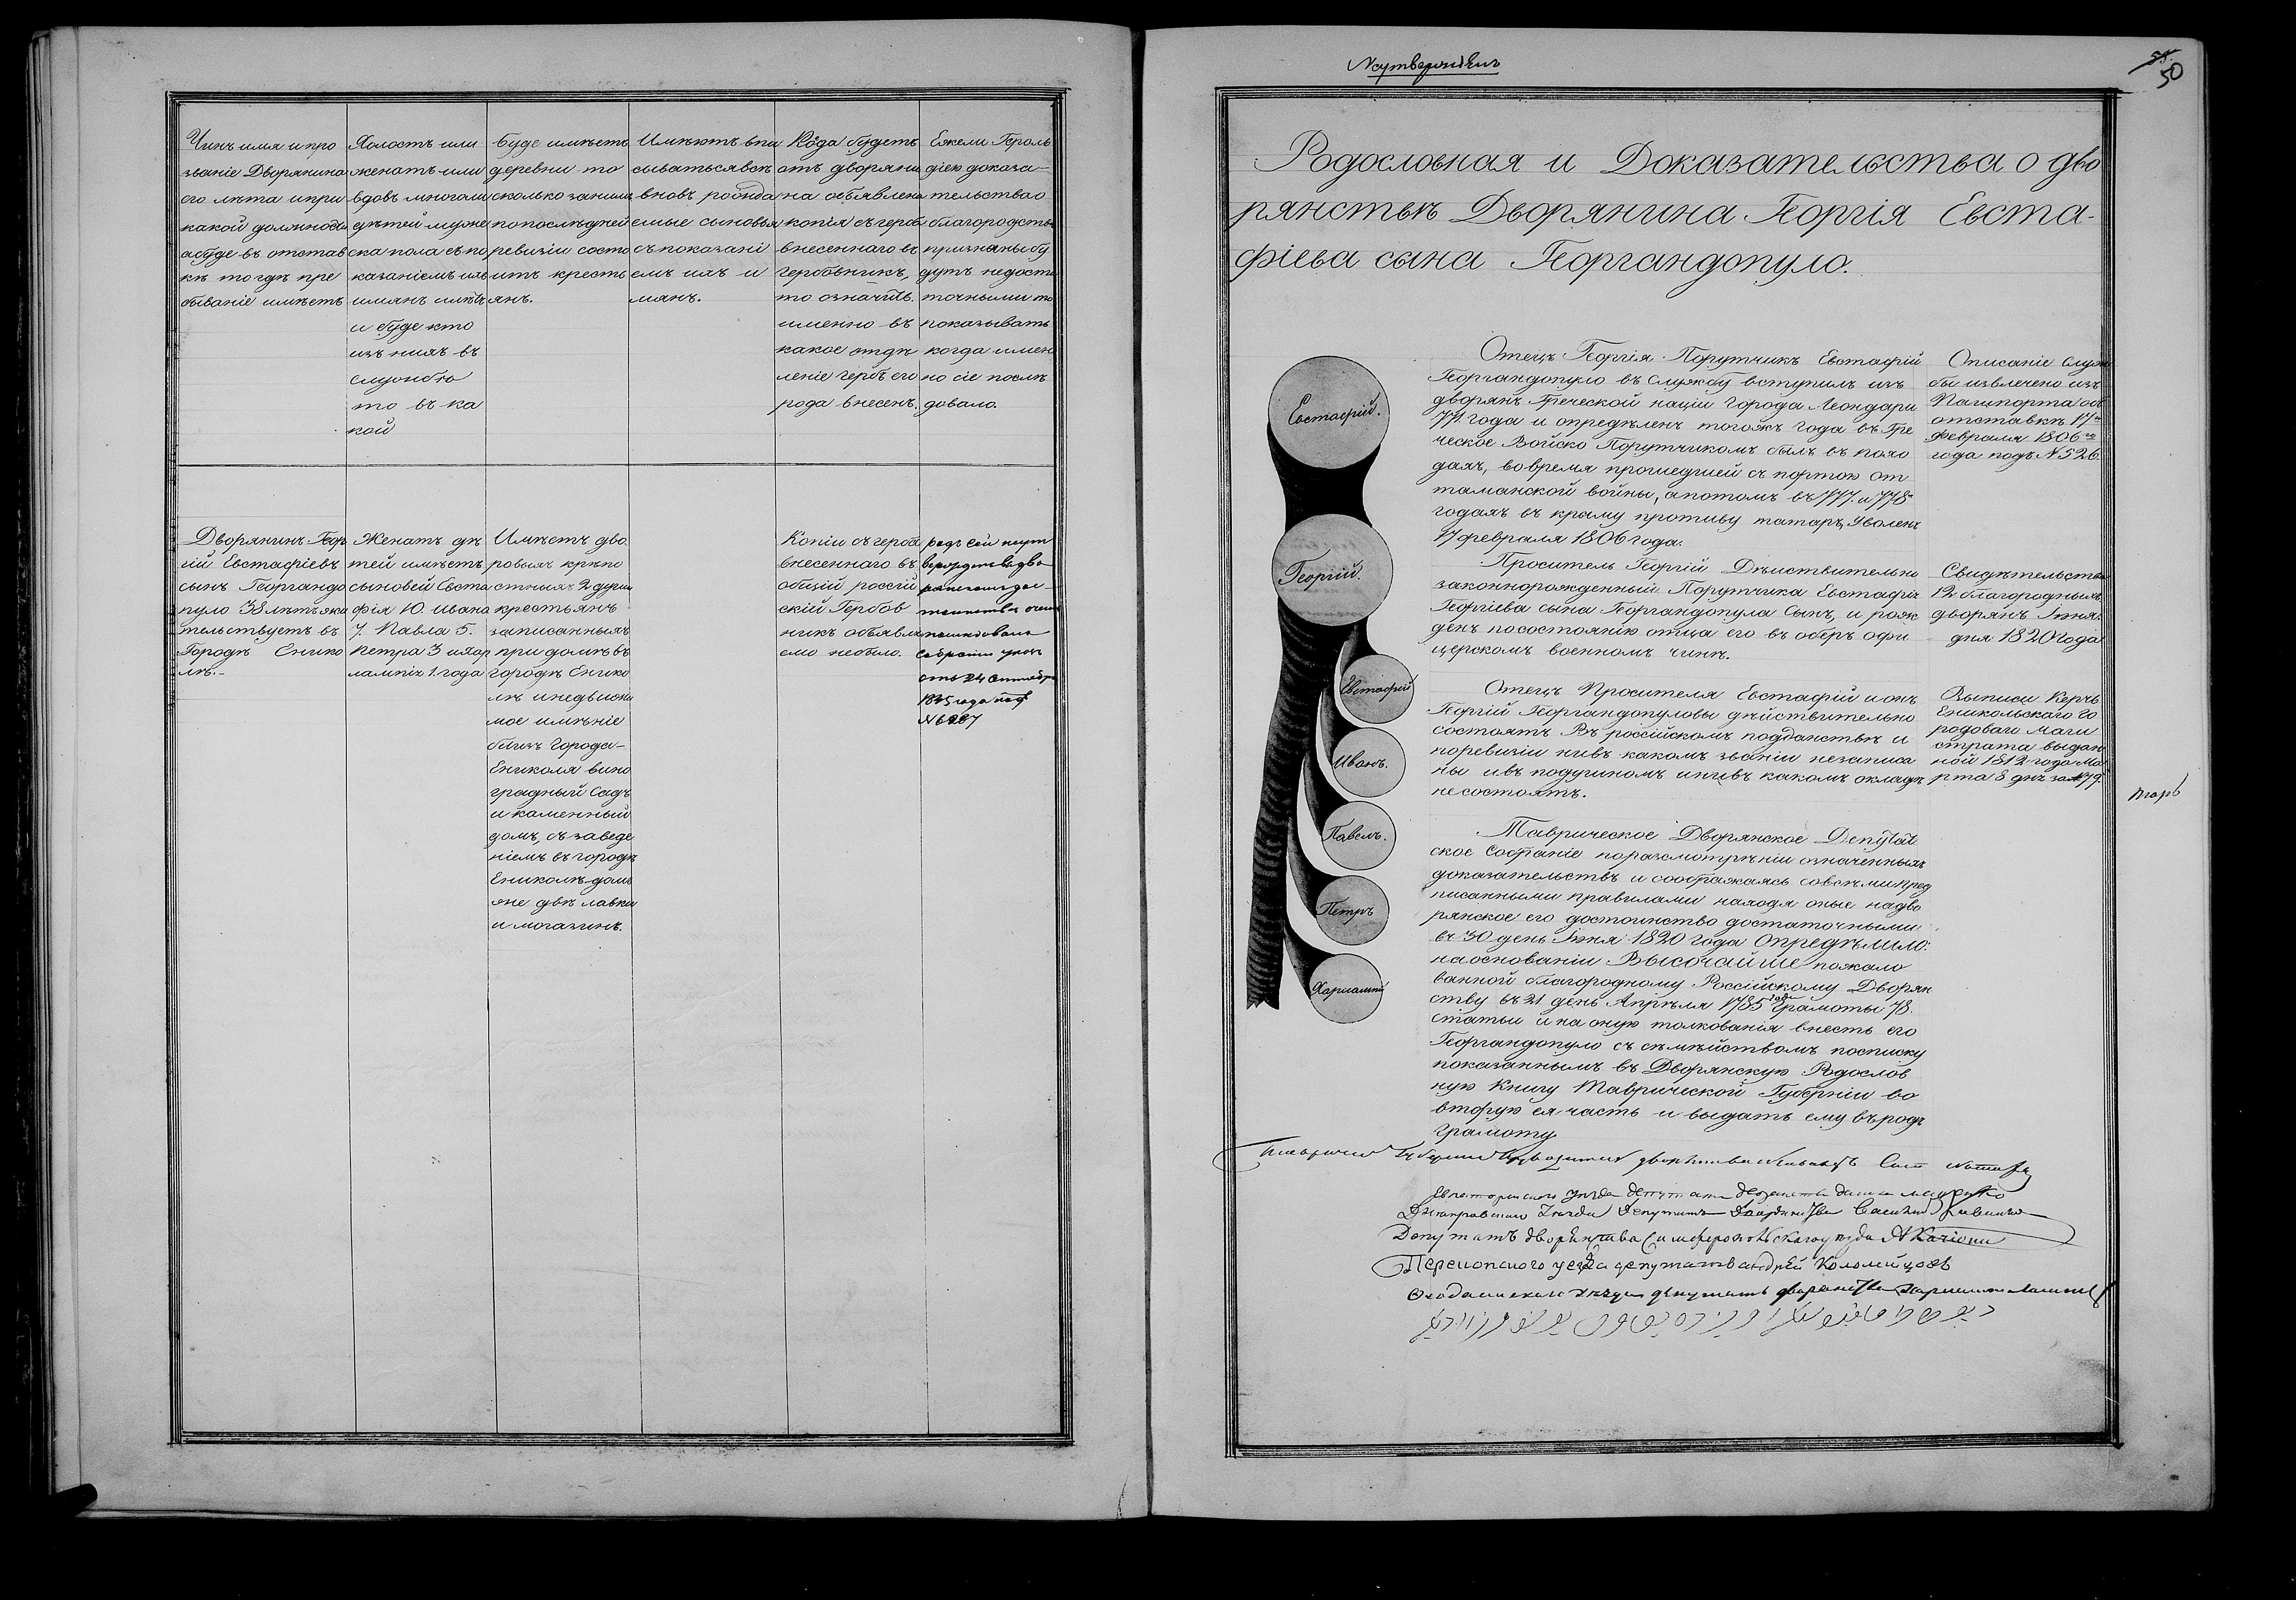 Чинъ имя и про
званіе Дворянина
его лѣта и при
какой должности
а буде въ отстав
кѣ то гдѣ пре
бываніе имѣетъ
Холостъ или
женатъ или
вдовъ многоли
дѣтей муже
ска пола съ по
казаніемъ ихъ
имянъ и лѣтъ
и буде кто
изъ нихъ въ
службѣ
то въ ка
кой
Буде имѣетъ
деревни то
сколько за ними
по послѣдней
ревизіи состо
итъ кресть
янъ.
Имѣютъ впи
сыватьсявсѣ
вновь рожда
емые сыновья
съ показані
емъ ихъ и
мянъ.
Когда будетъ
отъ дворяни
на объявлена
копія съ герба
внесеннаго въ
гербовникъ,
то означить
именно въ
какое отдѣ
леніе гербъ его
рода внесенъ.
Ежели Героль
діею доказа-
тельства о
благородствѣ
признаны бу
дутъ недоста
точными то
показывать
когда имен
но сіе послѣ
довало.
Дворянинъ Геор
гій Евстафіевъ
сынъ Георгандо
пуло 38 лѣтъ жи
тельствуетъ въ
Городѣ Енико
лѣ.-
Женатъ дѣ
тей имѣетъ
сыновей Евста
фія 10. Ивана
7. Павла 5.
Петра 3 и Хар
лампія 1. года
Имѣетъ дво
ровыхъ крѣпо
стныхъ 2 души
крестьянъ
записанныхъ
при домѣ въ
городѣ Енико
лѣ и недвижи
мое имѣніе
близъ города-
Ениколя вино
градный садъ
и каменный
домъ, съ заведе
ніемъ въ городѣ
Ениколѣ домъ
же двѣ лавки
и могазинъ.
Копіи съ герба
внесеннаго въ
общій россій
скій Гербов
никъ объявле
емо небыло.
родъ сей неут
вержденъ въ дво
рянскомъ дос-
тоинствѣ о чемъ
послѣдовалъ
Собранію указъ
отъ 24 Сентября
1845 года под
№ 6287
Неутвержденъ
50
Родословная и Доказательства о дво
рянствѣ Дворянина Георгія Евста-
фіева сына Георгандопуло.
Евстафій.
Георгій.
Евстафій
Иванъ.
Павелъ.
Петръ
Харлампій
Отецъ Георгія Порутчикъ Евстафій
Георгандопуло въ службу вступилъ изъ
дворянъ Греческой націи города Леондари
771 года и опредѣленъ того жъ года въ Гре
ческое Войско Порутчикомъ былъ въ похо
дахъ, во время прошедшей съ портою от
таманской войны, а потомъ въ 777. и 778
годахъ въ крыму противу татаръ, Уволенъ
17 февраля 1806 года.
Описаніе Служ
бы извлечено изъ
Пашпорта объ
отставкѣ 17го
февраля 1806го
года подъ № 526.
Проситель Георгій Дѣйствительно
законнорожденный Порутчика Евстафія
Георгіева сына Георгандопула Сынъ, и рож
денъ по состоянію отца его въ оберъ офи
церскомъ военномъ чинѣ.
Свидѣтельство
12. благородныхъ
дворянъ Іюня
дня 1820 года
Отецъ Просителя Евстафій и онъ
Георгій Георгандопуловы дѣйствительно
состоятъ Въ россійскомъ подданствѣ и
поревизіи нивъ какомъ званіи незаписа
ны ивъ подушномъ инивъ какомъ окладѣ
несостоятъ.
Выписи Керчь
Еникольскаго го
родоваго маги
страта выдан
ной 1812 года Ма
рта 8 дня за № 79.
Таврическое Дворянское Депутат
ское Собраніе поразсмотрѣніи означенныхъ
доказательствъ и соображаясь совсѣми пред
писанными правилами находя оные надво
рянское его достоинство достаточными
въ 30 день Іюня 1820 года Опредѣлило:
на основаніи ВЫСОЧАЙШЕ пожало
ванной благородному Россійскому Дворян
ству въ 21 день Апрѣля 1785 года Грамоты 78.
статьи и на оную толкованія внесть его
Георгандопуло съ семѣйствомъ посписку
показаннымъ въ Дворянскую Родослов
ную Книгу Таврической Губерніи во
вторую ея часть и выдать ему въ родъ
грамоту
Депутатъ дворянства Симферопольскаго уѣзда
Перекопскаго уезда депутатъ андрей Коломийцовъ